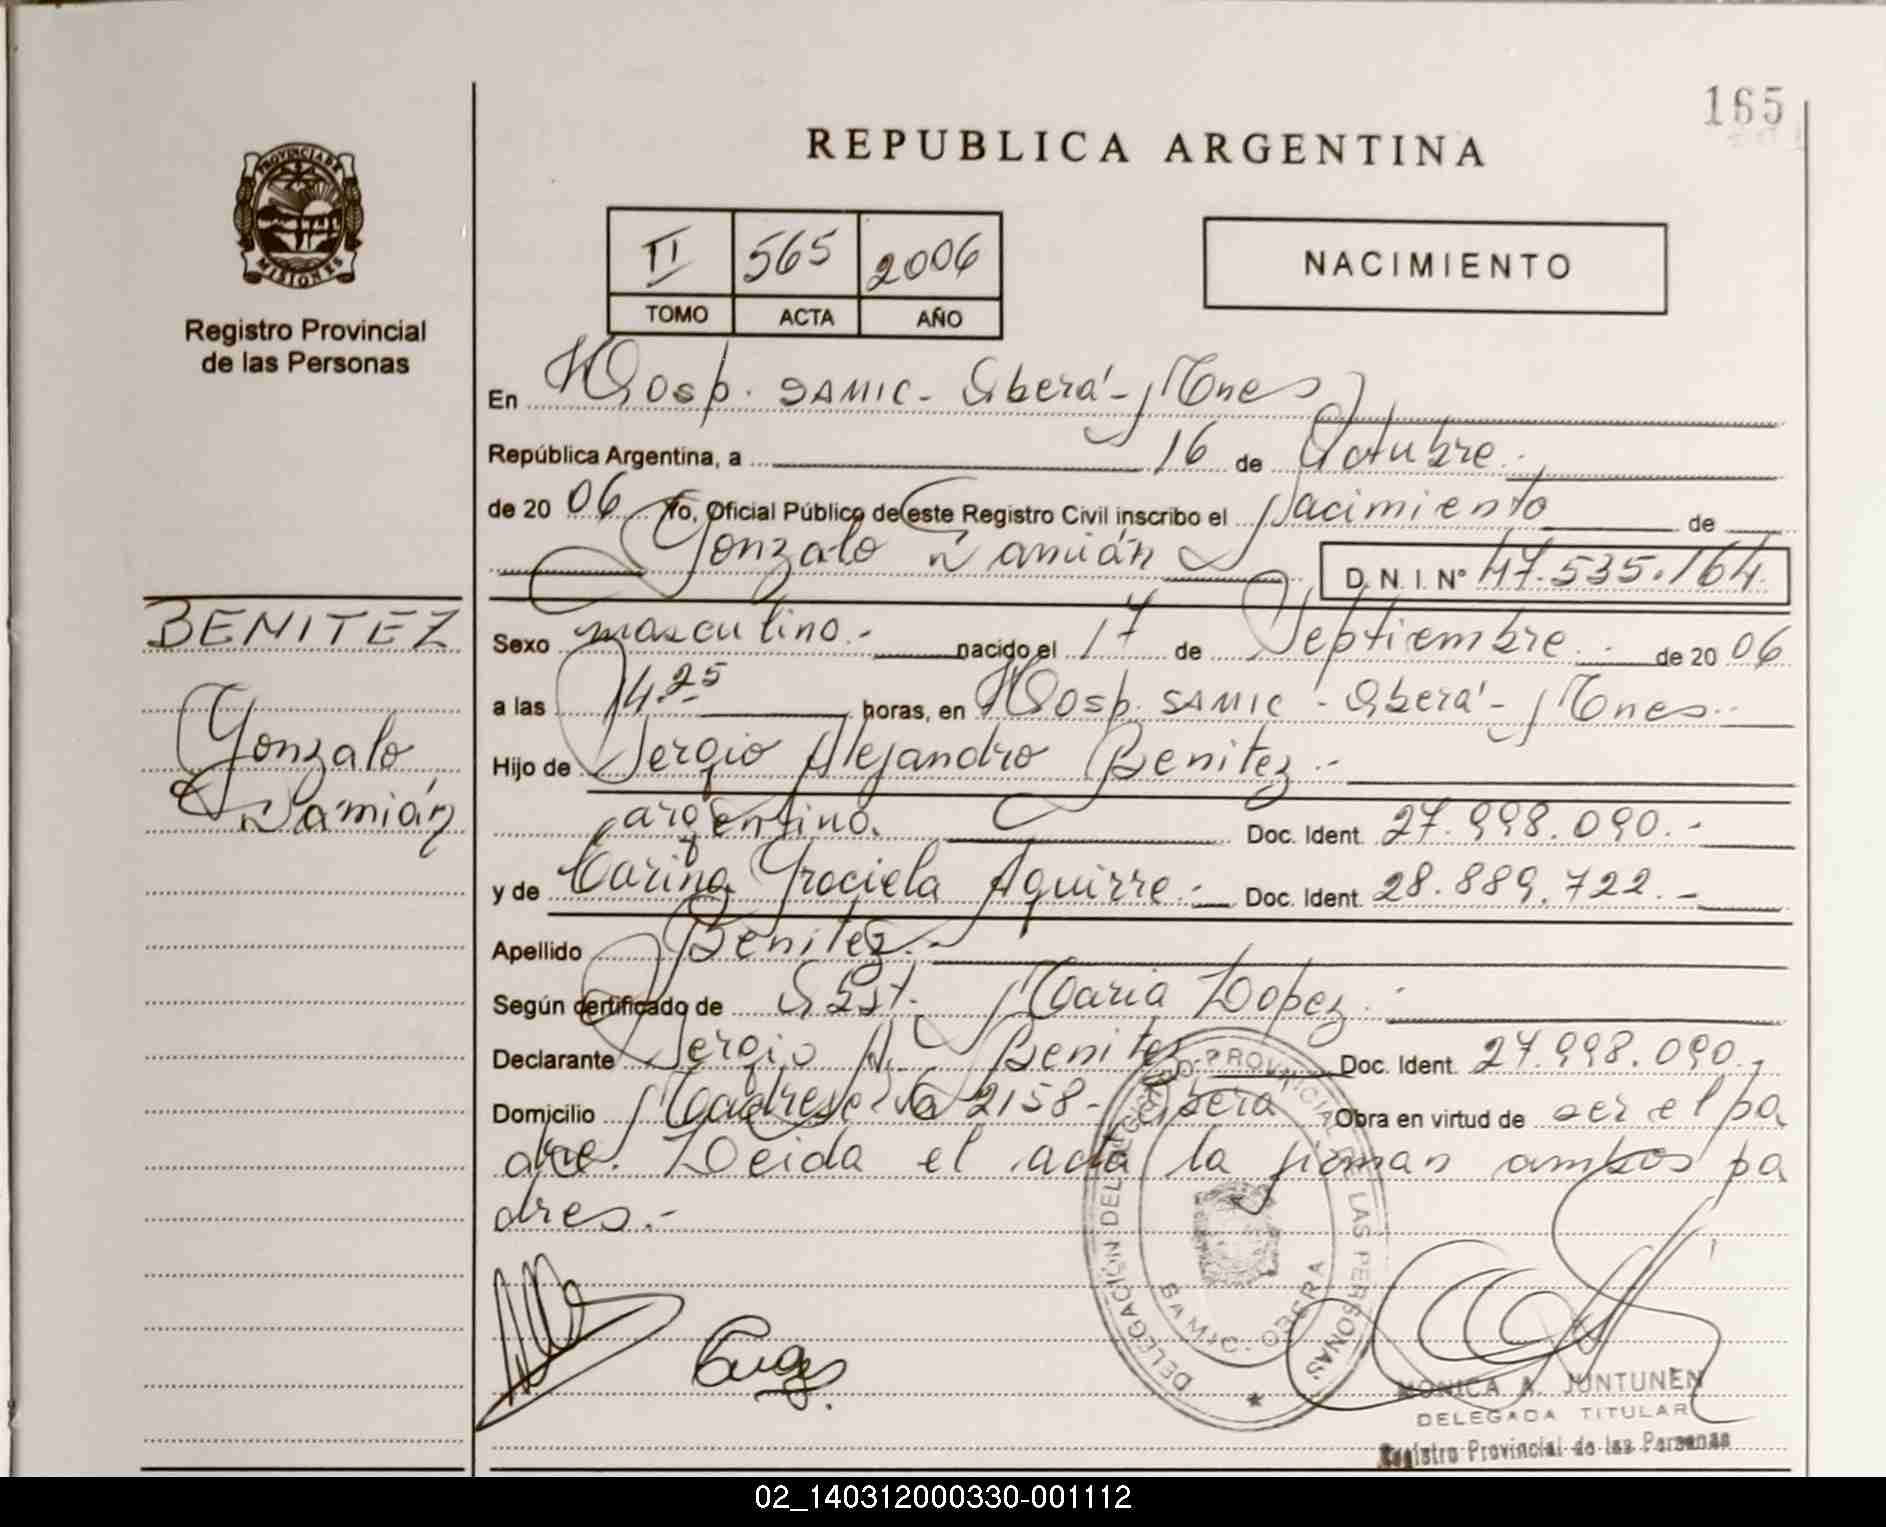 165
REPUBLICA ARGENTINA
PROVINCIA DE
MISIONES
Registro Provincial
de las Personas
II 565 2006
TOMO ACTA AÑO
NACIMIENTO
En Hosp. SAMIC - Oberá - Mnes
República Argentina, a 16 de Octubre.-
de 20 06 Yo, Oficial Público de este Registro Civil inscribo el Nacimiento de
Gonzalo Damián D. N. I. N° 47.535.164.
BENITEZ
Gonzalo
Damián
Sexo masculino.- nacido el 17 de Septiembre.- de 20 06
a las 14.25 horas, en Hosp. SAMIC - Oberá - Mnes.-
Hijo de Sergio Alejandro Benitez.-
argentino. Doc. Ident. 27.998.090.-
y de Carina Graciela Aguirre.- Doc. Ident. 28.889.722.-
Apellido Benitez.-
Según certificado de Obst. Maria Lopez.-
Declarante Sergio A. Benitez Doc. Ident. 27.998.090.-
Domicilio 2158 - Oberá Obra en virtud de ser el pa
dre. Leida el acta la firman ambos pa
dres.-
DELEGACIÓN DEL REGISTRO PROVINCIAL DE LAS PERSONAS
SAMIC - OBERA
MONICA A. JUNTUNEN
DELEGADA TITULAR
Registro Provincial de las Personas
02_140312000330-001112